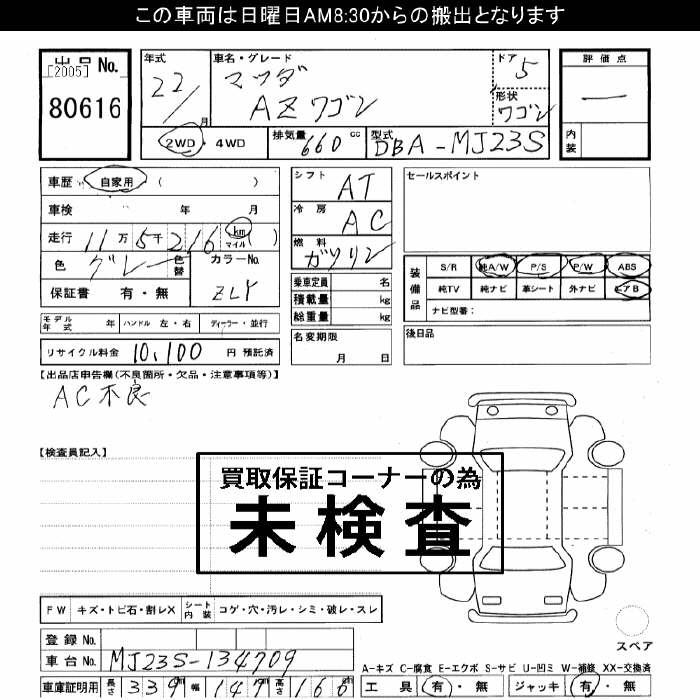 この車両は日曜日AM8:30からの搬出となります
出品 No.
[2005]
80616
年式
22/
月
車名・グレード
マツダ
AZワゴン
ドア
5
形状
ワゴン
評価点
一
内装
2WD・4WD
排気量 660 cc
型式 DBA-MJ23S
車歴 自家用 ( )
車検 年 月
走行 11万5千216 km マイル ( )
色 グレー 色替 カラーNo.
保証書 有・無 ZLY
シフト AT
冷房 AC
燃料 ガソリン
乗車定員 名
積載量 kg
総重量 kg
セールスポイント
装備品
S/R 純A/W P/S P/W ABS
純TV 純ナビ 革シート 外ナビ エアB
ナビ型番:
モデル年式 年 ハンドル 左・右 ディーラー・並行
名変期限
月 日
後日品
リサイクル料金 10,100 円 預託済
【出品店申告欄(不良箇所・欠品・注意事項等)】
AC不良
【検査員記入】
買取保証コーナーの為
未検査
FW キズ・トビ石・割レX シート内装 コゲ・穴・汚レ・シミ・破レ・スレ
登録 No.
車台 No. MJ23S-134709
車庫証明用 長さ 339 cm 幅 147 cm 高さ 166 cm
スペア
A-キズ C-腐食 E-エクボ S-サビ U-凹ミ W-補修 XX-交換済
工具 有・無 ジャッキ 有・無